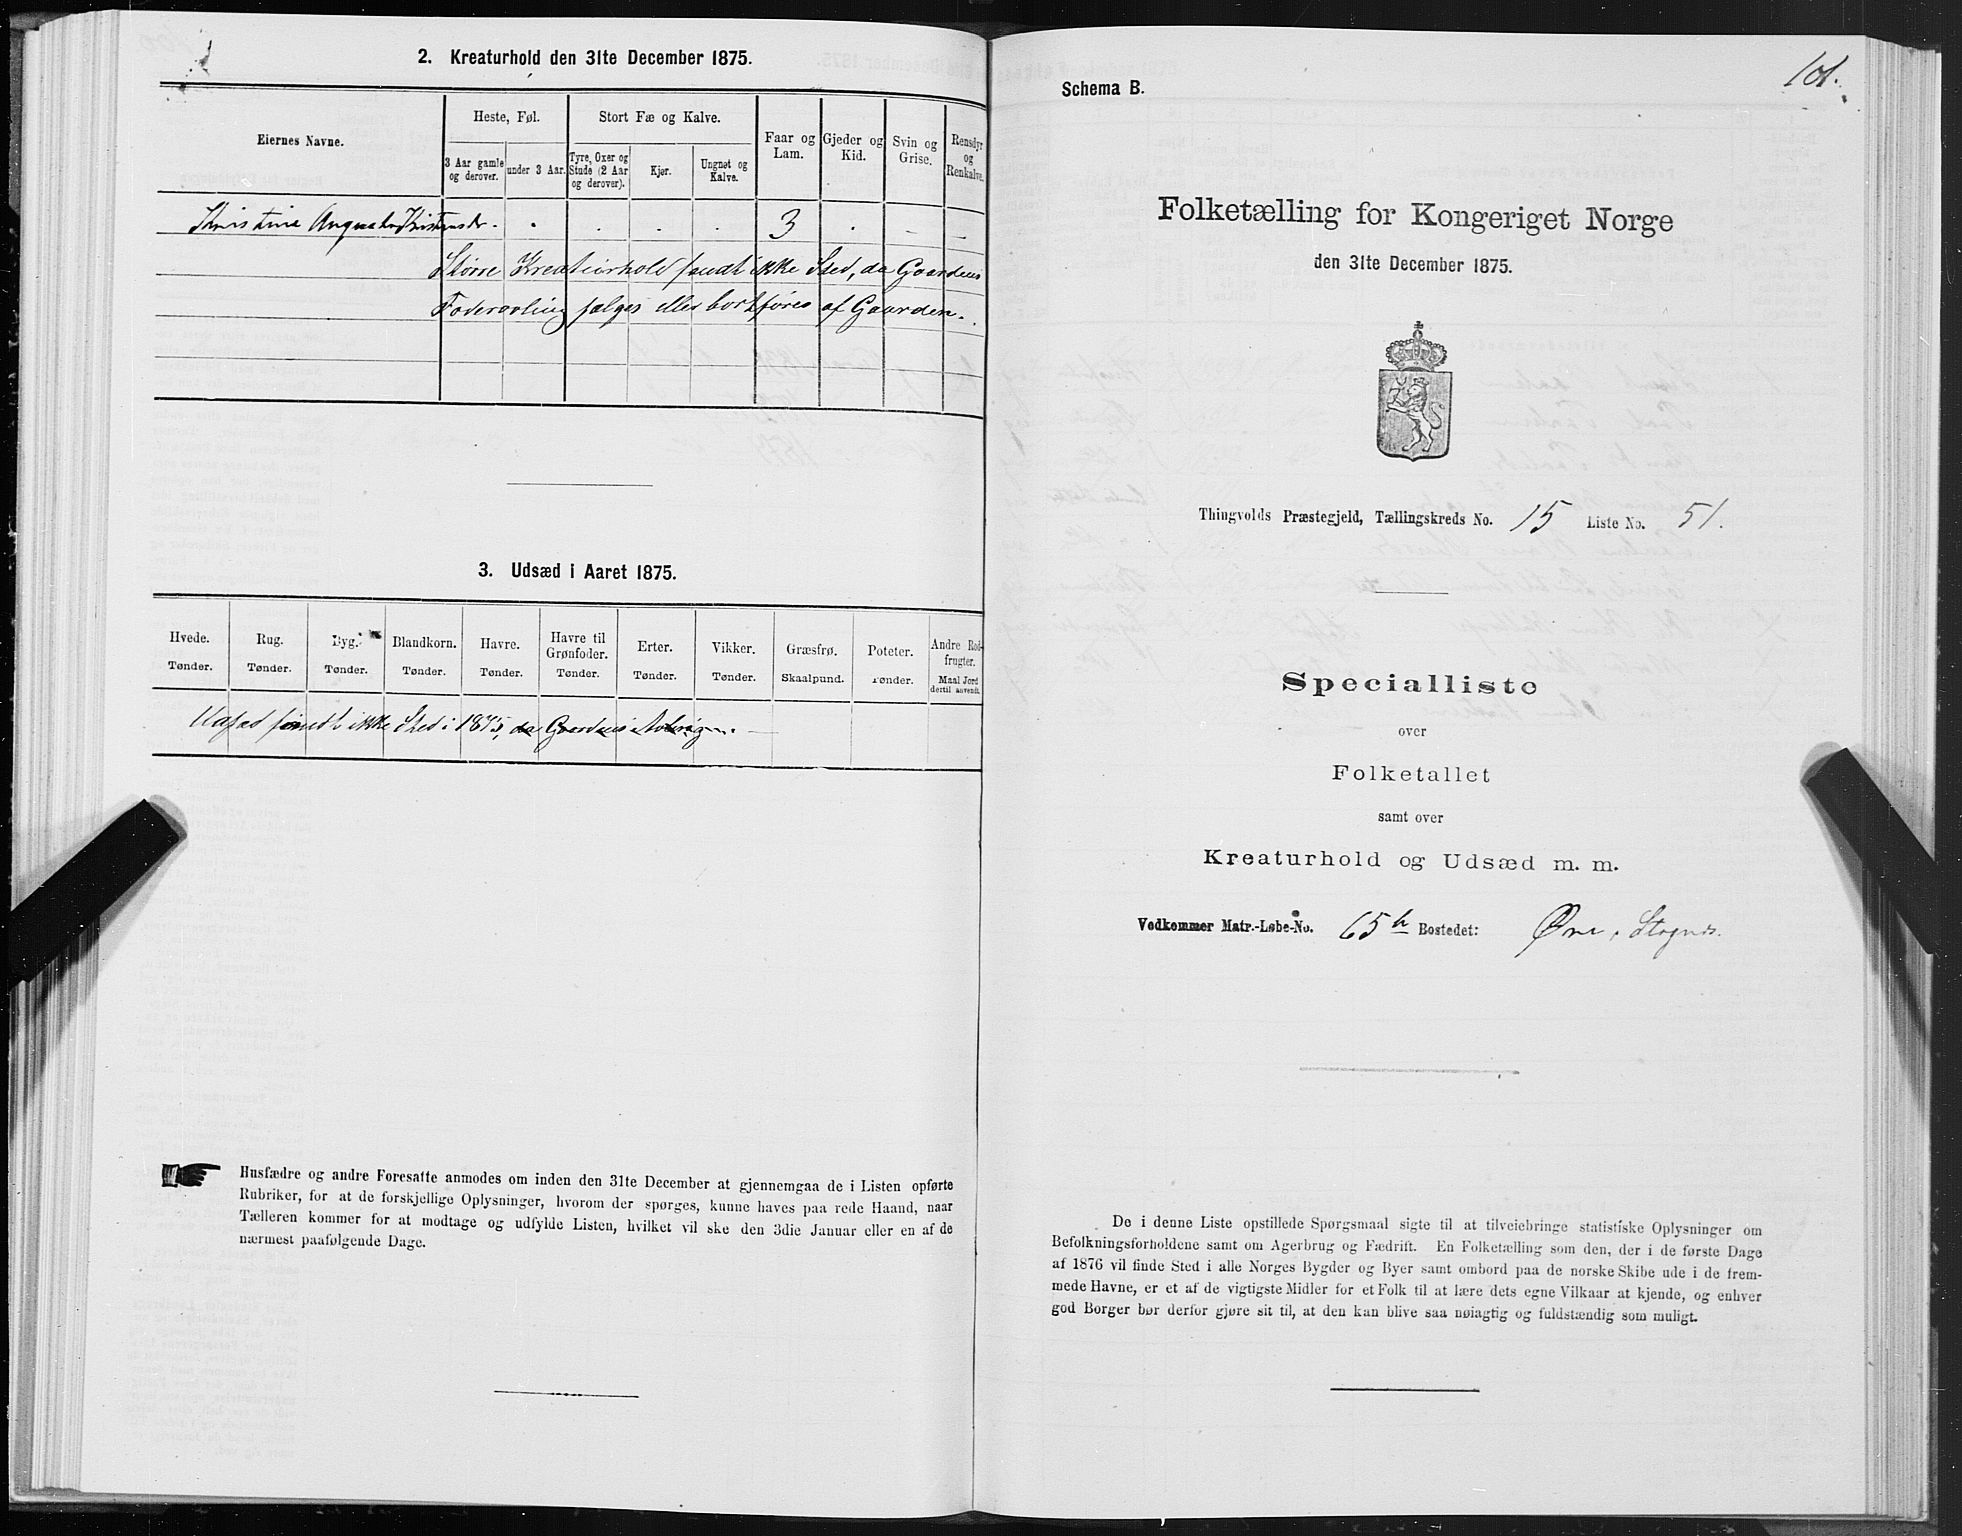 2. Kreaturhold den 31te December 1875.
Eiernes Navne.
Heste, Føl.
3 Aar gamle og derover.
under 3 Aar.
Stort Fæ og Kalve.
Tyre, Oxer og Stude (2 Aar og derover).
Kjør.
Ungnøt og Kalve.
Faar og Lam.
Gjeder og Kid.
Svin og Grise.
Rensdyr og Renkalve.
3
Større Kreaturhold fandt ikke Sted, da Gaardens
Foderavling sælges eller bortføres af Gaarden.
3. Udsæd i Aaret 1875.
Hvede. Tønder.
Rug. Tønder.
Byg. Tønder.
Blandkorn. Tønder.
Havre. Tønder.
Havre til Grønfoder. Tønder.
Erter. Tønder.
Vikker. Tønder.
Græsfrø. Skaalpund.
Poteter. Tønder.
Andre Rodfrugter. Maal Jord dertil anvendt.
Udsæd fandt ikke Sted i 1875, da Gaardens
Husfædre og andre Foresatte anmodes om inden den 31te December at gjennemgaa de i Listen opførte
Rubriker, for at de forskjellige Oplysninger, hvorom der spørges, kunne haves paa rede Haand, naar
Tælleren kommer for at modtage og udfylde Listen, hvilket vil ske den 3die Januar eller en af de
nærmest paafølgende Dage.
101.
Schema B.
Folketælling for Kongeriget Norge
den 31te December 1875.
Thingvolds Præstegjeld, Tællingskreds No. 15 Liste No. 51.
Specialliste
over
Folketallet
samt over
Kreaturhold og Udsæd m. m.
Vedkommer Matr.-Løbe-No. 65 Bostedet: Øre,
De i denne Liste opstillede Spørgsmaal sigte til at tilveiebringe statistiske Oplysninger om
Befolkningsforholdene samt om Agerbrug og Fædrift. En Folketælling som den, der i de første Dage
af 1876 vil finde Sted i alle Norges Bygder og Byer samt ombord paa de norske Skibe ude i de frem-
mede Havne, er et af de vigtigste Midler for et Folk til at lære dets egne Vilkaar at kjende, og enhver
god Borger bør derfor gjøre sit til, at den kan blive saa nøiagtig og fuldstændig som muligt.